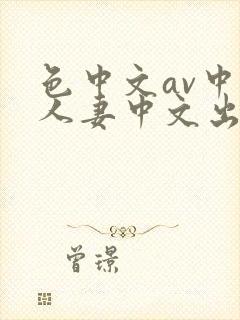 色中文av中
人妻中文出
曾璟